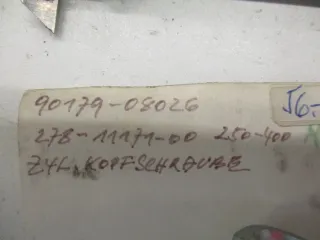 90179-08026
278-11171-00 250-400
ZYL. KOPFSCHRAUBE
56.-